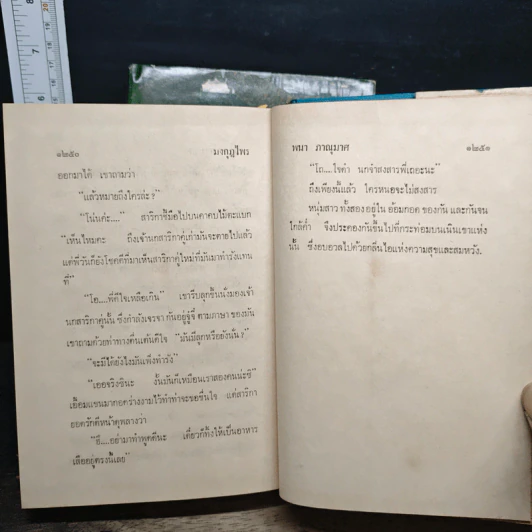 ๑๒๕๐ มงกุฎไพร
ออกมาได้ เขาถามว่า
"แล้วหมายถึงใครล่ะ?"
"โน่นค่ะ...." สาริกาชี้มือไปบนคาคบไม้ตะแบก
"เห็นไหมคะ ถึงเจ้านกสาริกาคู่เก่ามันจะตายไปแล้ว
แต่พี่วันก็ยังโชคดีที่มาเห็นสาริกาคู่ใหม่ที่มันมาทำรังแทน
ที่"
"โอ....พี่ดีใจเหลือเกิน" เขารีบลุกขึ้นนั่งมองเจ้า
นกสาริกาคู่นั้น ซึ่งกำลังเจรจา กันอยู่จู้จี๋ ตามภาษา ของมัน
เขาถามด้วยท่าทางตื่นเต้นดีใจ "มันมีลูกหรือยังนั่น?"
"จะมีได้ยังไงมันเพิ่งทำรัง"
"เออจริงซินะ งั้นมันก็เหมือนเราสองคนน่ะซิ"
เอื้อมแขนมากอดร่างงามไว้ทำท่าจะขอชื่นใจ แต่สาริกา
ยอดรักตีหน้าดุพลางว่า
"อี....อย่ามาทำพูดดีนะ เดี๋ยวก็ทิ้งให้เป็นอาหาร
เสืออยู่ตรงนี้เลย"
พนา ภาณุมาศ ๑๒๕๑
"โถ....ใจดำ นกจ๋าสงสารพี่เถอะนะ"
ถึงเพียงนี้แล้ว ใครหนอจะไม่สงสาร
หนุ่มสาว ทั้งสอง อยู่ใน อ้อมกอด ของกัน และกันจน
ใกล้ค่ำ จึงประคองกันขึ้นไปที่กระท่อมบนเนินเขาแห่ง
นั้น ซึ่งอบอวลไปด้วยกลิ่นไอแห่งความสุขและสมหวัง.